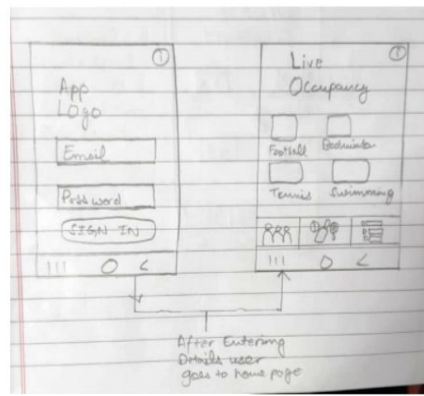 App
Logo
Email
Password
SIGN IN
Live
Occupancy
Football
Badminton
Tennis
Swimming
After Entering
Details user
goes to home page